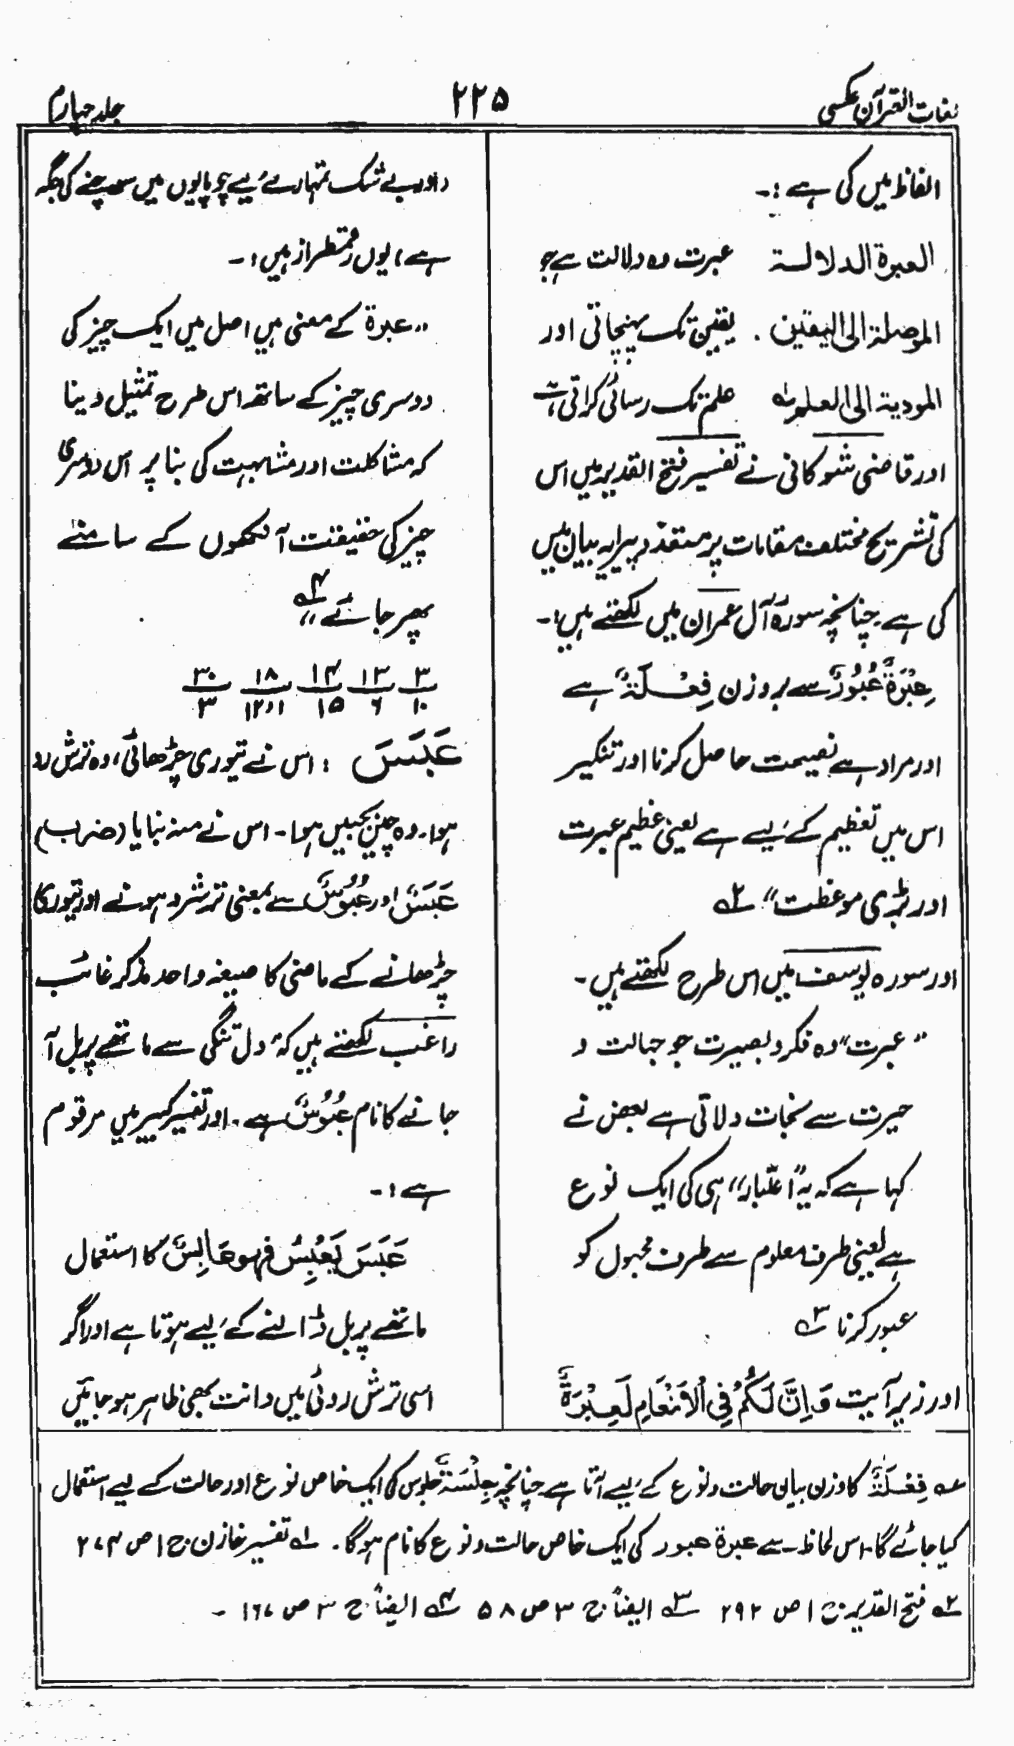 لغات القرآن عکسی
۲۲۵
جلد چہارم
الفاظ میں کی ہے :۔
العبرة الدلالة عبرت وہ دلالت ہے جو
الموصلة الی الیقین . یقین تک پہنچاتی اور
المودیة الی العلم لہ علم تک رسائی کراتی ہے
اور قاضی شوکانی نے تفسیر فتح القدیر میں اس
کی تشریح مختلف مقامات پر متعدد پیرایہ بیان میں
کی ہے چنانچہ سورہ آل عمران میں لکھتے ہیں :۔
عِبْرَةٌ عُبُوْرٌ سے بروزن فِعْلَةٌ ہے
اور مراد ہے نصیحت حاصل کرنا اور تنکیر
اس میں تعظیم کے لیے ہے یعنی عظیم عبرت
اور بڑی موعظت" ۲ہ
اور سورہ یوسف میں اس طرح لکھتے ہیں ۔
"عبرت" وہ فکر و بصیرت جو جہالت و
حیرت سے نجات دلاتی ہے بعض نے
کہا ہے کہ یہ "اعتبار" ہی کی ایک نوع
ہے یعنی طرف معلوم سے طرف مجہول کو
عبور کرنا ۳ہ
اور زیر آیت وَاِنَّ لَكُمْ فِی الْاَنْعَامِ لَعِبْرَةً
(اور بے شک تمہارے لیے چوپایوں میں سوچنے کی جگہ
ہے) یوں رقمطراز ہیں :۔
"عبرة کے معنی ہیں اصل میں ایک چیز کی
دوسری چیز کے ساتھ اس طرح تمثیل دینا
کہ مشاکلت اور مشابہت کی بنا پر اس دوسری
چیز کی حقیقت آنکھوں کے سامنے
پھر جائے" ۴ہ
۳/۱۰ ۱۳/۶ ۱۴/۱۵ ۱۸/۱۲،۱ ۳۰/۳
عَبَسَ : اس نے تیوری چڑھائی، وہ ترش رو
ہوا۔ وہ چیں بجبیں ہوا۔ اس نے منہ بنایا (ضرب)
عَبَسٌ اور عُبُوْسٌ سے بمعنی ترشرو ہونے اور تیوری کا
چڑھانے کے ماضی کا صیغہ واحد مذکر غائب
راغب لکھتے ہیں کہ دل تنگی سے ماتھے پر بل آ
جانے کا نام عُبُوْسٌ ہے۔ اور تفسیر کبیر میں مرقوم
ہے :۔
عَبَسَ یَعْبِسُ فهو عَابِسٌ کا استعمال
ماتھے پر بل ڈالنے کے لیے ہوتا ہے اور اگر
اسی ترش روئی میں دانت بھی ظاہر ہو جائیں
عہ فِعْلَةٌ کا وزن بیان حالت و نوع کے لیے آتا ہے چنانچہ جِلْسَةٌ جلوس کی ایک خاص نوع اور حالت کے لیے استعمال
کیا جائے گا۔ اس لحاظ سے عبرة عبور کی ایک خاص حالت و نوع کا نام ہوگا۔ لہ تفسیر خازن ج ۱ ص ۲۷۴
۲ہ فتح القدیر ج ۱ ص ۲۹۲ ۳ہ ایضاً ج ۳ ص ۵۸ ۴ہ ایضاً ج ۳ ص ۱۶۷ ۔